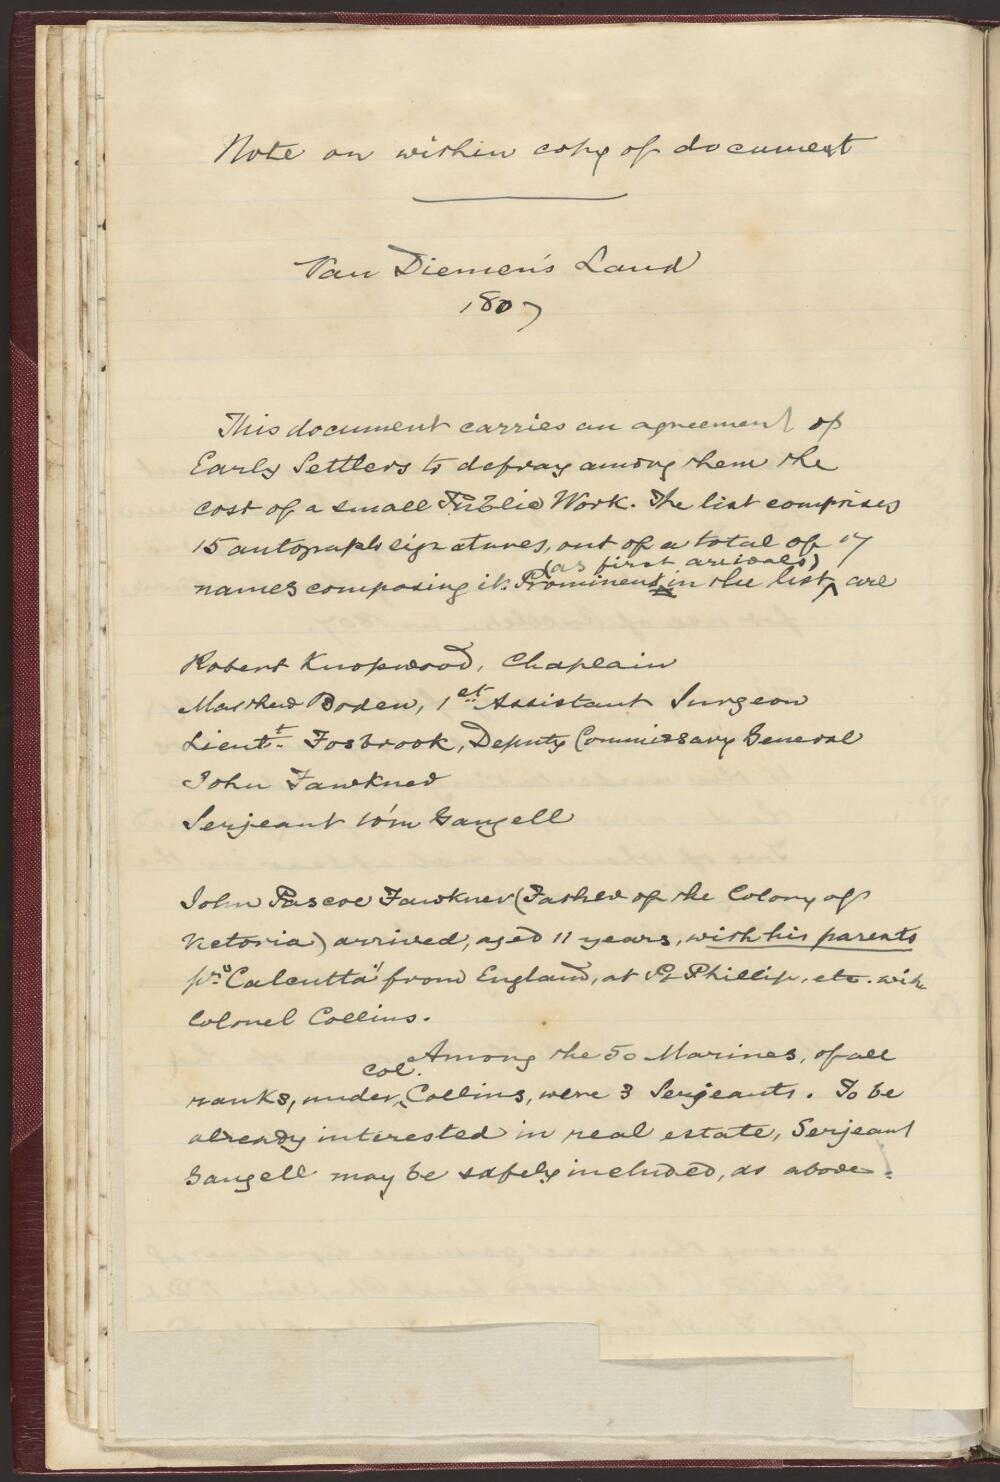 Note on within copy of document
Van Diemen's Land
1807
This document carries an agreement of
Early Settlers to defray among them the
cost of a small Public Work. The list comprises
15 autograph signatures, out of a total of 17
names composing it. Prominent in the list (as first arrivals) are
Robert Knopwood, Chaplain
Matthew Boden, 1st Assistant Surgeon
Lieutt. Fosbrook, Deputy Commissary General
John Fawkner
Serjeant Wm Gangell
John Pascoe Fawkner (Father of the Colony of
Victoria) arrived, aged 11 years, with his parents
pr. "Calcutta" from England, at Pt Phillip, etc. with
Colonel Collins.
Among the 50 Marines, of all
ranks, under Col. Collins, were 3 Serjeants. To be
already interested in real estate, Serjeant
Gangell may be safely included, as above.